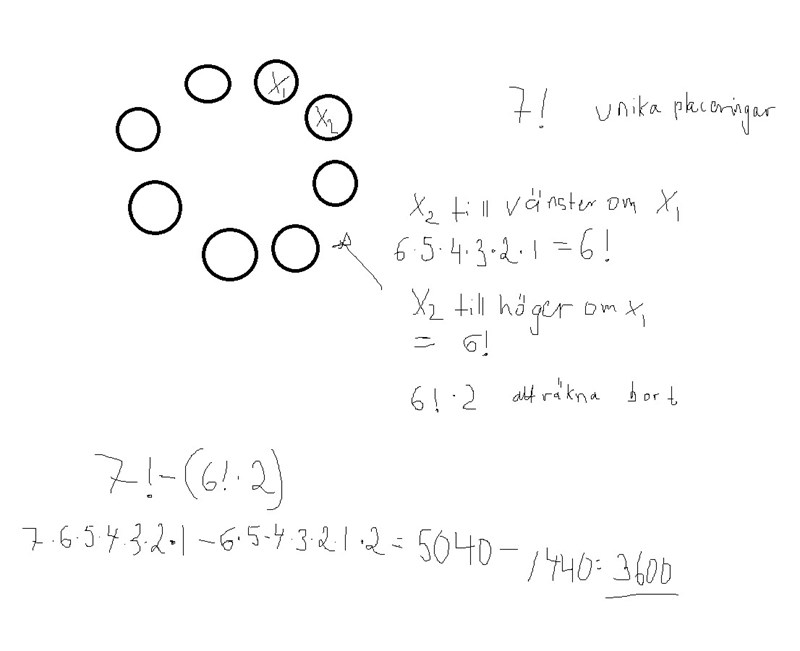 X₁
X₂
7! unika placeringar
X₂ till vänster om X₁
6·5·4·3·2·1 = 6!
X₂ till höger om x₁
= 6!
6! · 2 att räkna bort
7! - (6! · 2)
7·6·5·4·3·2·1 - 6·5·4·3·2·1·2 = 5040 - 1440 = 3600